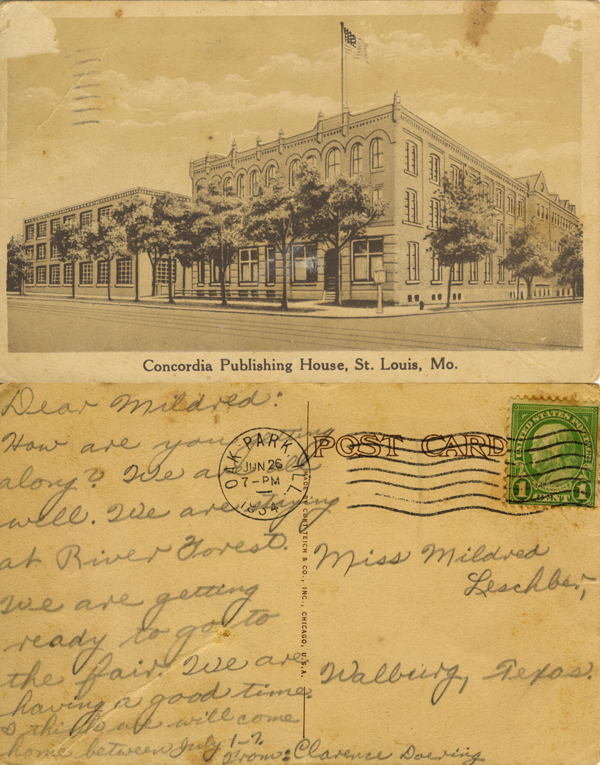 Concordia Publishing House, St. Louis, Mo.
Dear Mildred:
How are you getting
along? We are all
well. We are staying
at River Forest.
We are getting
ready to go to
the fair. We are
having a good time.
I think we will come
home between July 1-7.
From: Clarence Doering
OAK PARK, ILL.
JUN 26
7-PM
1934
POST CARD
UNITED STATES POSTAGE
1 CENT 1
MADE BY CURT TEICH & CO., INC., CHICAGO, U.S.A.
Miss Mildred
Leschber,
Walburg, Texas.